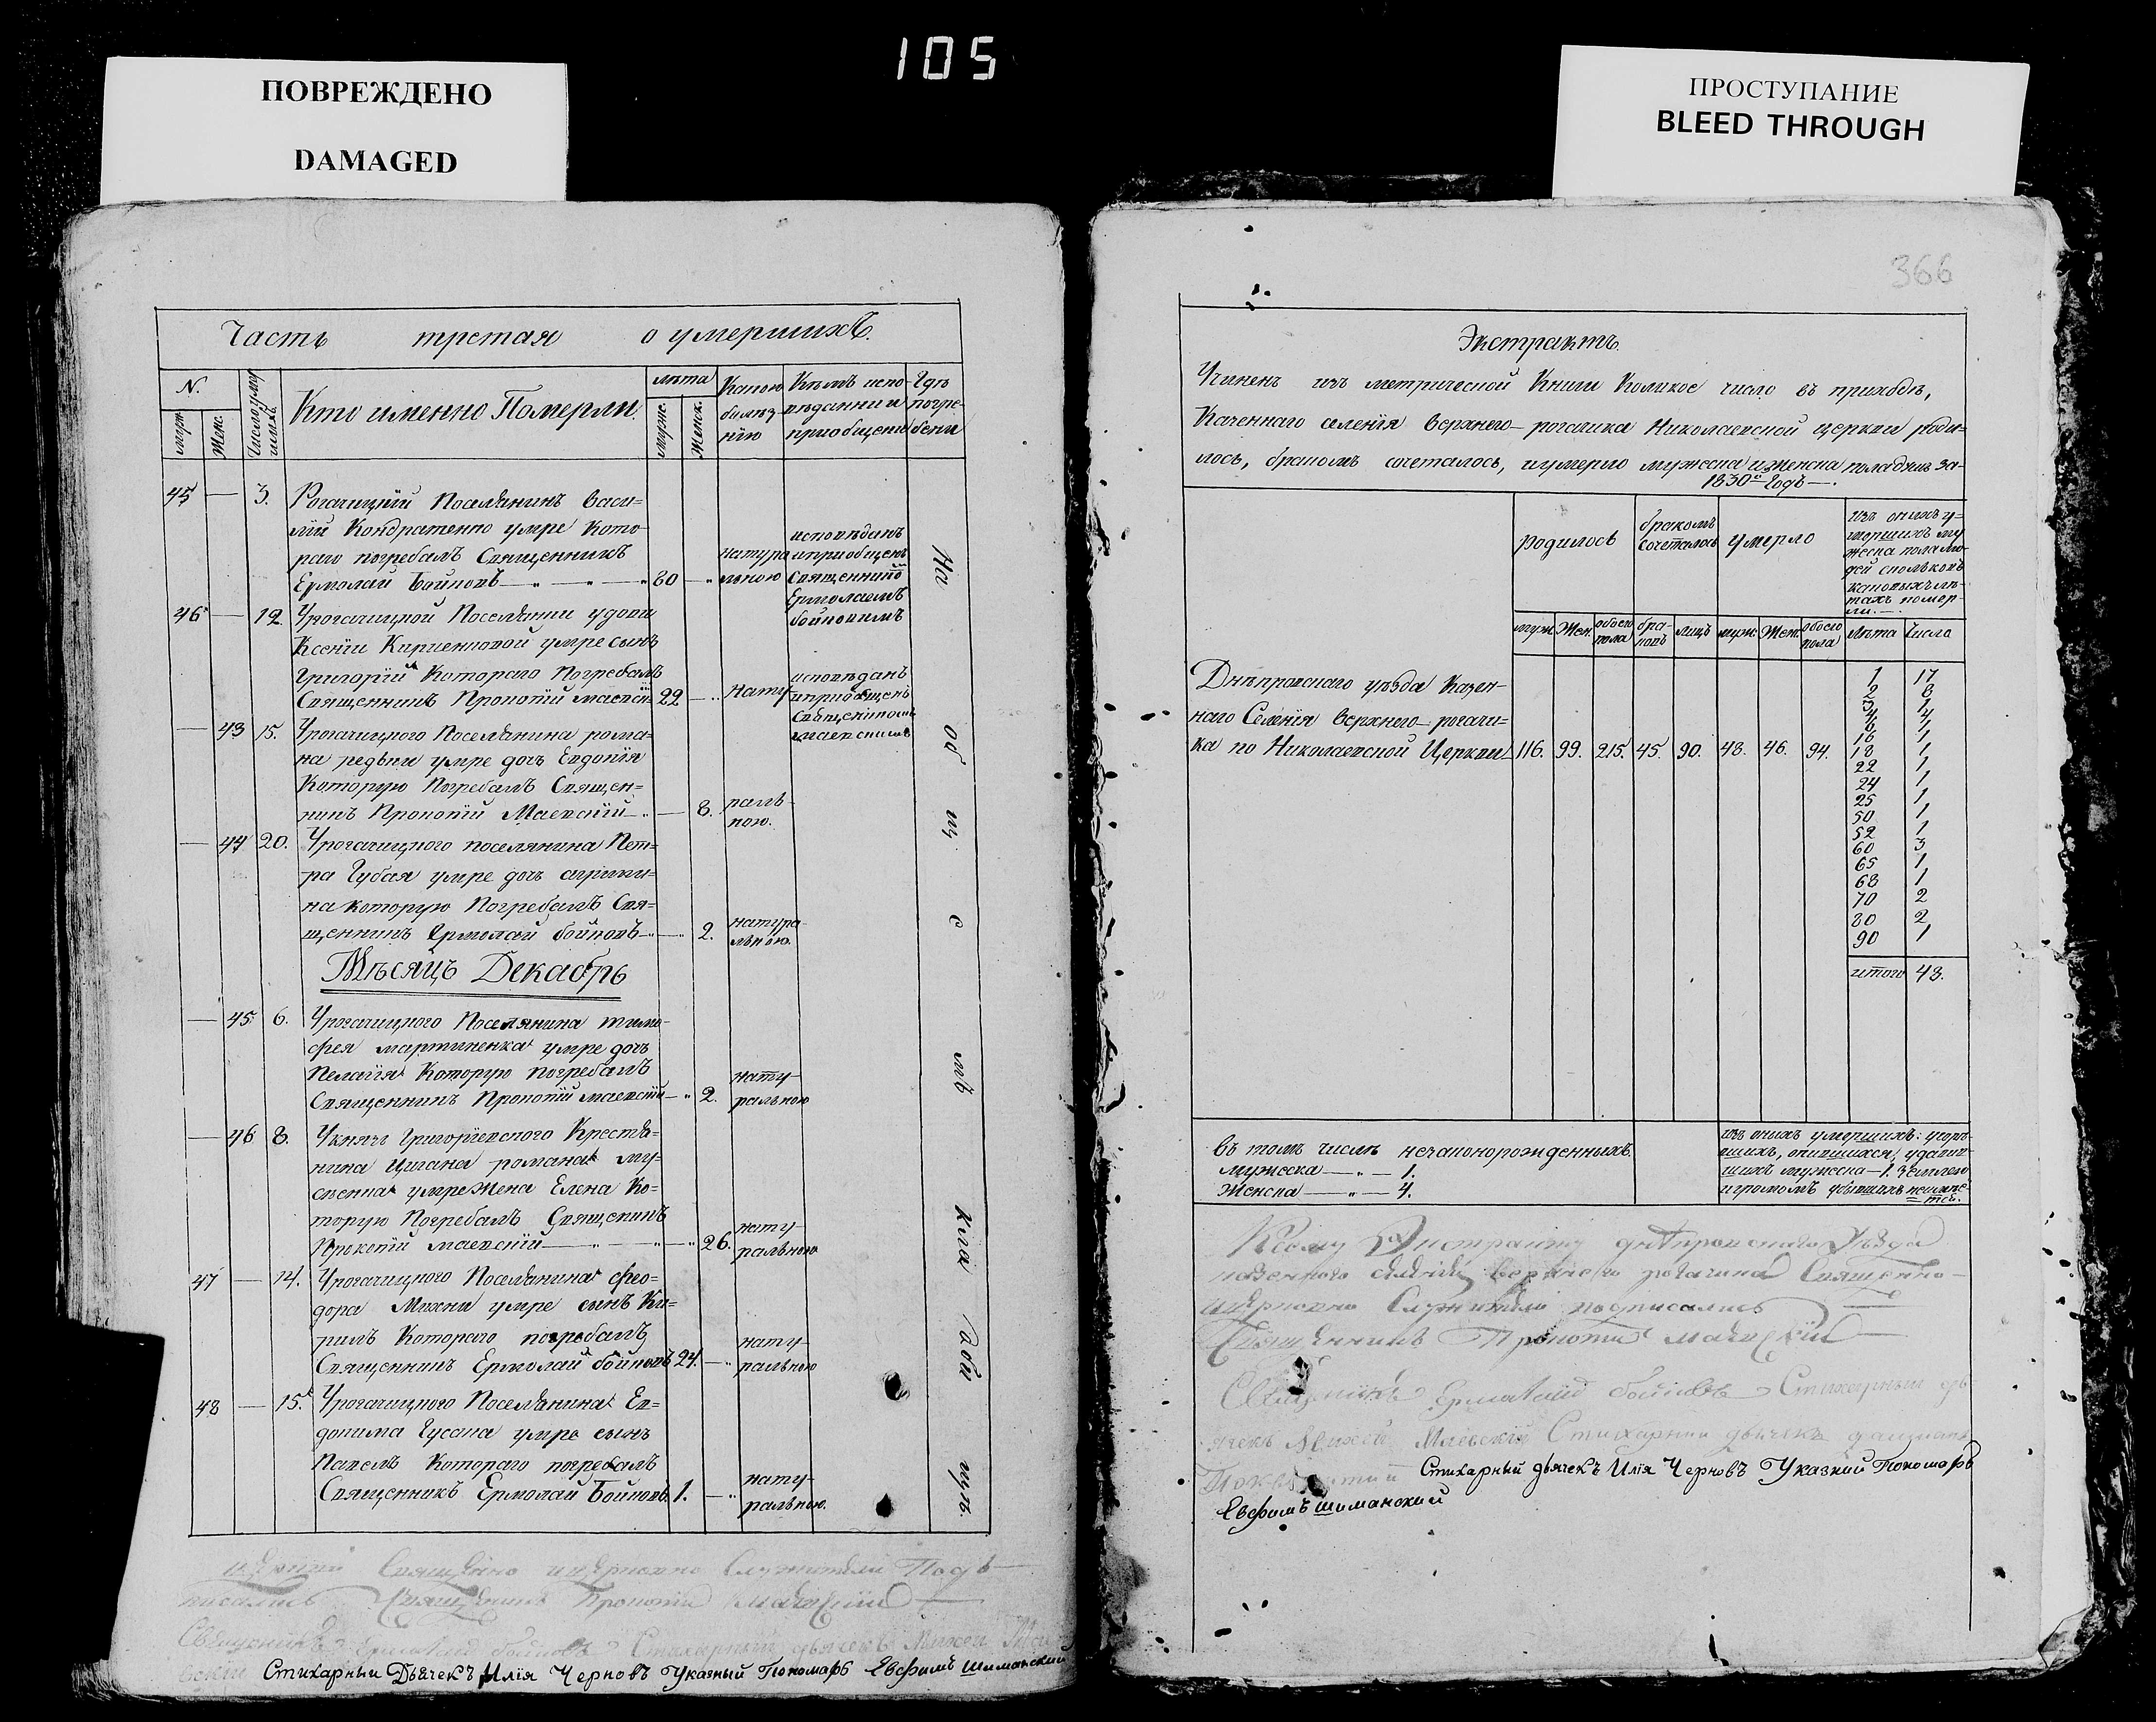 105
ПОВРЕЖДЕНО
DAMAGED
ПРОСТУПАНИЕ
BLEED THROUGH
Часть третая о умершихъ.
N.
муж.
Женс.
Число умершихъ
Кто именно Померли.
лѣта
мужс.
женск.
Какою болѣзнію
Кѣмъ исповѣданы и приобщены
Гдѣ погребены
45 — 3. Рогачицкій Поселянинъ Васи=
лій Кондратенко умре Кото
раго погребалъ Священникъ
Ермолай Бойковъ 80 натуральною
исповѣданъ
и приобщенъ
Священнико
Ермолаемъ
бойковимъ
46 — 12. Урогачицкой Поселянки удови
Ксеніи Кириенковой умре сынъ
Григорій Котораго Погребалъ
Священникъ Прокопій маевскій 22 — Нату
исповѣданъ
и приобщенъ
— 43 15. Урогачицкого Поселянина рома=
на редьки умре дочь Евдокія
Которую Погребалъ Священ=
никъ Прокопій Маевскій — 8. раль-
ною.
— 44 20. Урогачицкого поселянина Пет=
ра Губая умре дочь
на которую Погребалъ Свя=
щенникъ Ермолай бойковъ — 2. натура
льною.
Мѣсяцъ Декабрь
— 45 6. Урогачицкого Поселянина тимо-
фея мартиненка умре дочь
Пелагія Которую погребалъ
Священникъ Прокопій маевскій — 2. нату-
ральною
— 46 8. Укнязь Григоріевского Крестя=
нина Цигана романа му-
сіенка умре Жена Елена Ко=
торую Погребалъ Священикъ
Прокопій маевскій — 26. нату-
ральною
47 — 14. Урогачицкого Поселянина фео=
дора Михни умре сынъ Ки=
рилъ Котораго погребалъ
Священникъ Ермолай бойковъ 24. — нату-
ральною
48 — 15. Урогачицкого Поселянина Ев=
докима Гусака умре сынъ
Павелъ Котораго погребалъ
Священникъ Ермолай Бойковъ. 1. — нату-
ральною.
На об щ е мъ кла дби щѣ.
Священно и церковно Служители Подъ
писались Священникъ Прокопій Маевскій
Священникъ Ермолай бойковъ Стихарный дьячекъ Михей Мае
вскій Стихарныи Дьячекъ Илія Черновъ Указный Пономарь Евфимъ Шиманский
366
Экстрактъ.
Учиненъ изъ метрической Книги Коликое число въ приходѣ,
Казеннаго селенія верхнего-рогачика Николаевской церкви роди=
лось, бракомъ сочеталось, и умерло мужеска и женска пола
1830 Годъ —.
родилось
бракомъ сочеталось
умерло
изъ онихъ у=
мершихъ му
жеска пола лю-
дей сколько въ
каковыхъ лѣ-
тахъ помер-
ли.—.
муж. Жен. обоего пола бра-ковъ лицъ муж. Жен. обоего пола Лѣта Число
Днѣпровскаго уѣзда Казен-
наго Селенія верхнего-рогачи=
ка по Николаевской Церкви 116. 99. 215. 45. 90. 48. 46. 94.
1 17
2 8
3 1
4 4
6 1
16 1
18 1
22 1
24 1
25 1
50 1
52 1
60 3
65 1
68 1
70 2
80 2
90 1
итого 48.
въ томъ числѣ незаконорожденныхъ.
мужеска — 1.
Женска — 4.
изъ оныхъ умершихъ: угорѣ
вшихъ, опившихся, удавив
шихъ мужеска — 1. землею
и громомъ убившихъ неимѣе-
тся.
Ксему Экстракту днѣпровскаго Уѣзда
казенного селенія верхнего рогачика Священно-
Церковно Служители подписались
Священникъ Прокопій маевскій
Священникъ Ермолай бойковъ Стихарный дь
ячекъ Михей Маевскій Стихарный дьячекъ
Стихарный дьячекъ Илія Черновъ Указний Пономарь
Евфимъ шиманский